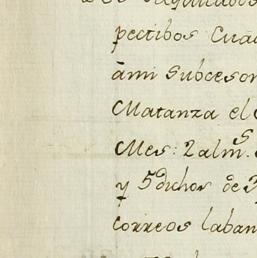 pectibos Cua
ami Subceson
Matanza el
Mes: 2 alm.s
y 5 dichos de 3
correos laban